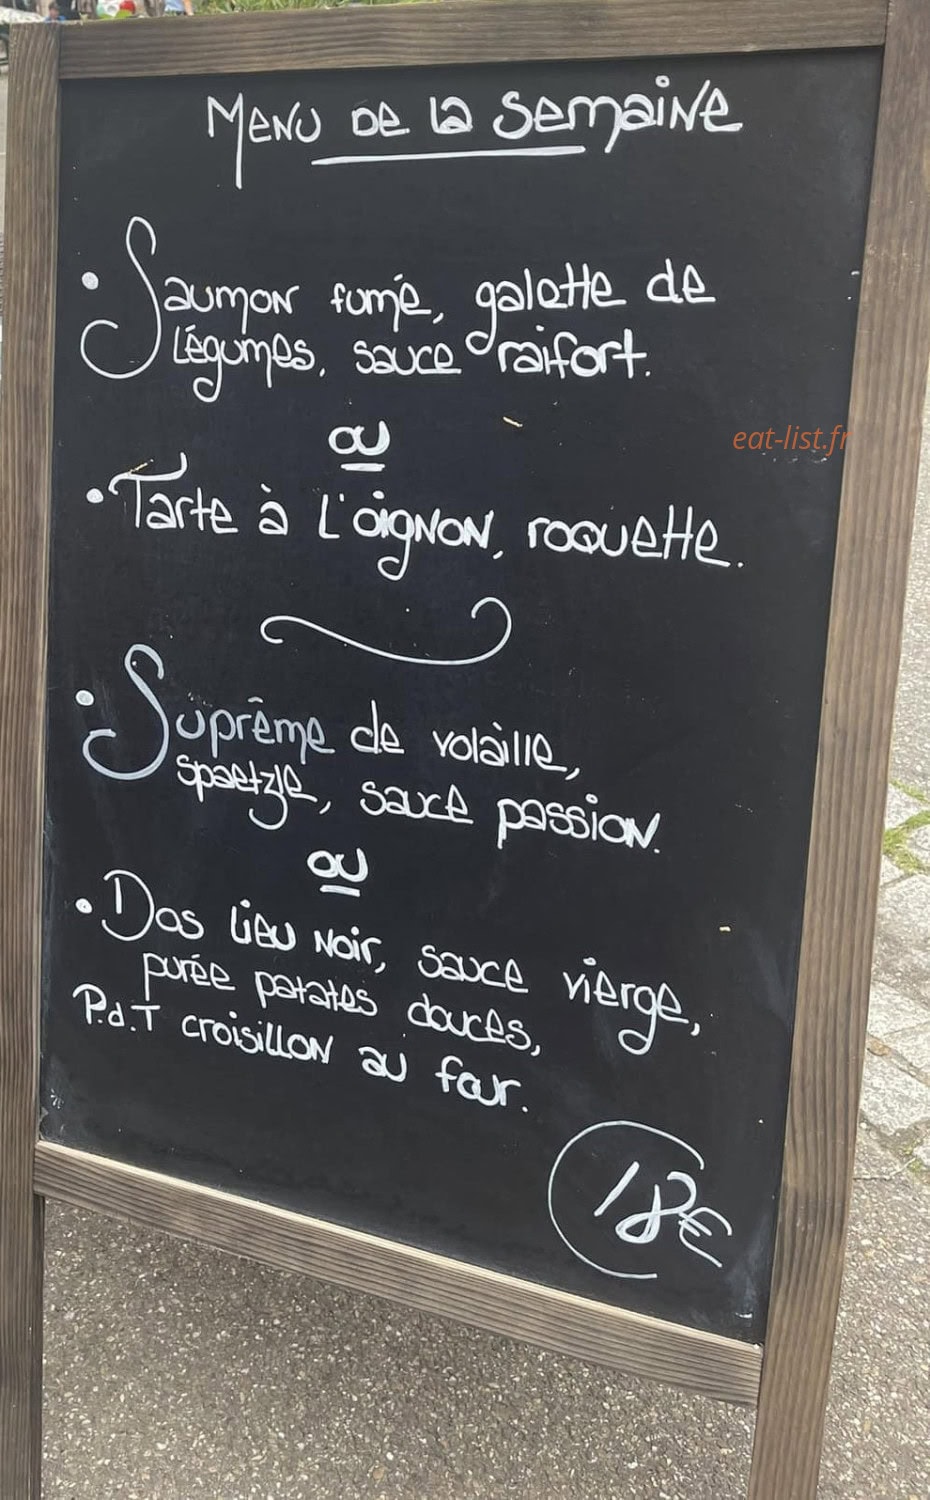 Menu de la semaine
• Saumon fumé, galette de
légumes, sauce raifort.
ou
eat-list.fr
• Tarte à l'oignon, roquette.
• Suprême de volaille,
spaetzle, sauce passion.
ou
• Dos lieu noir, sauce vierge,
purée patates douces,
P.d.T croisillon au four.
18€